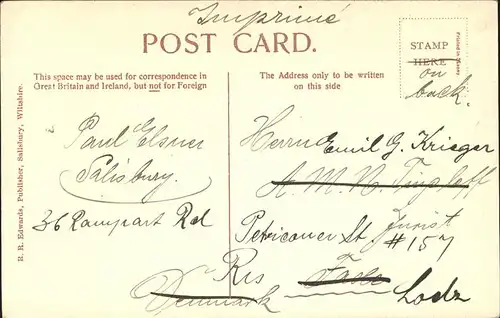 Imprimé
POST CARD.
STAMP
HERE
on
back.
Printed in Saxony
This space may be used for correspondence in
Great Britain and Ireland, but not for Foreign
The Address only to be written
on this side
R. R. Edwards, Publisher, Salisbury, Wiltshire.
Paul Elsner
Salisbury.
36 Rampart Rd
Herrn Emil G. Krieger
A. M. N.
Jurist
Petricaner St. #157
Rus
Lodz
Denmark